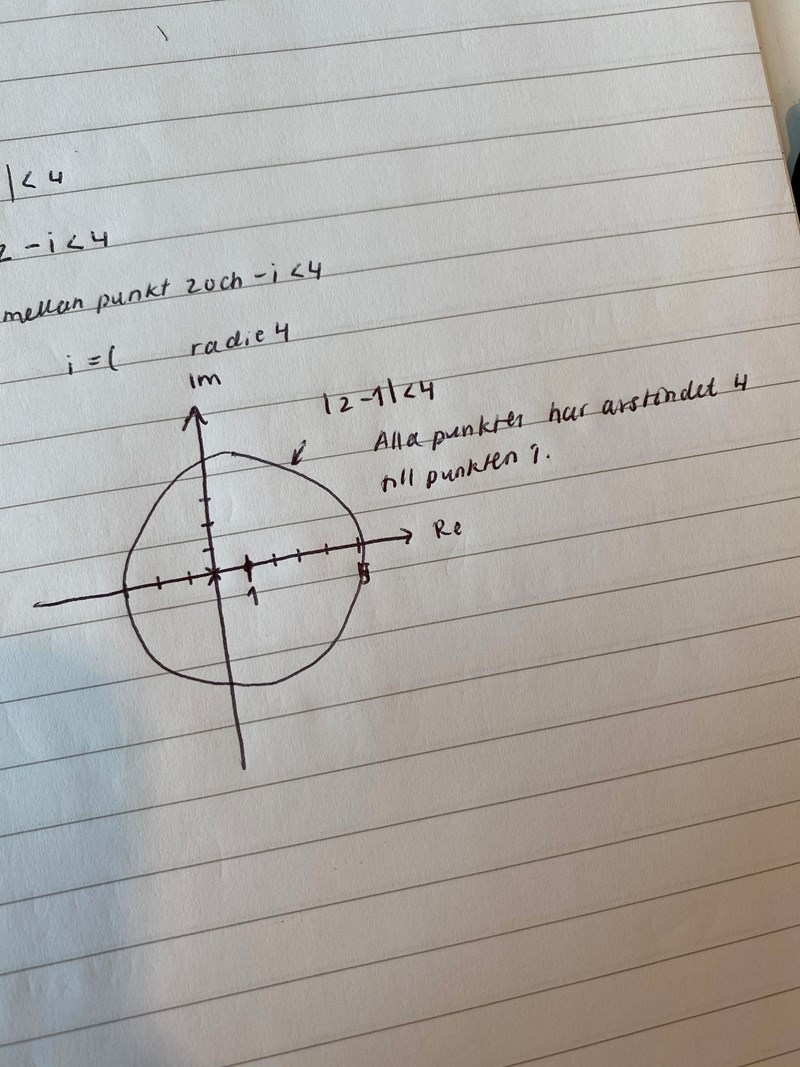 |< 4
z - i < 4
mellan punkt z och - i < 4
i = (
radie 4
Im
|z - 1| < 4
Alla punkter har avståndet 4
till punkten 1.
Re
1
5